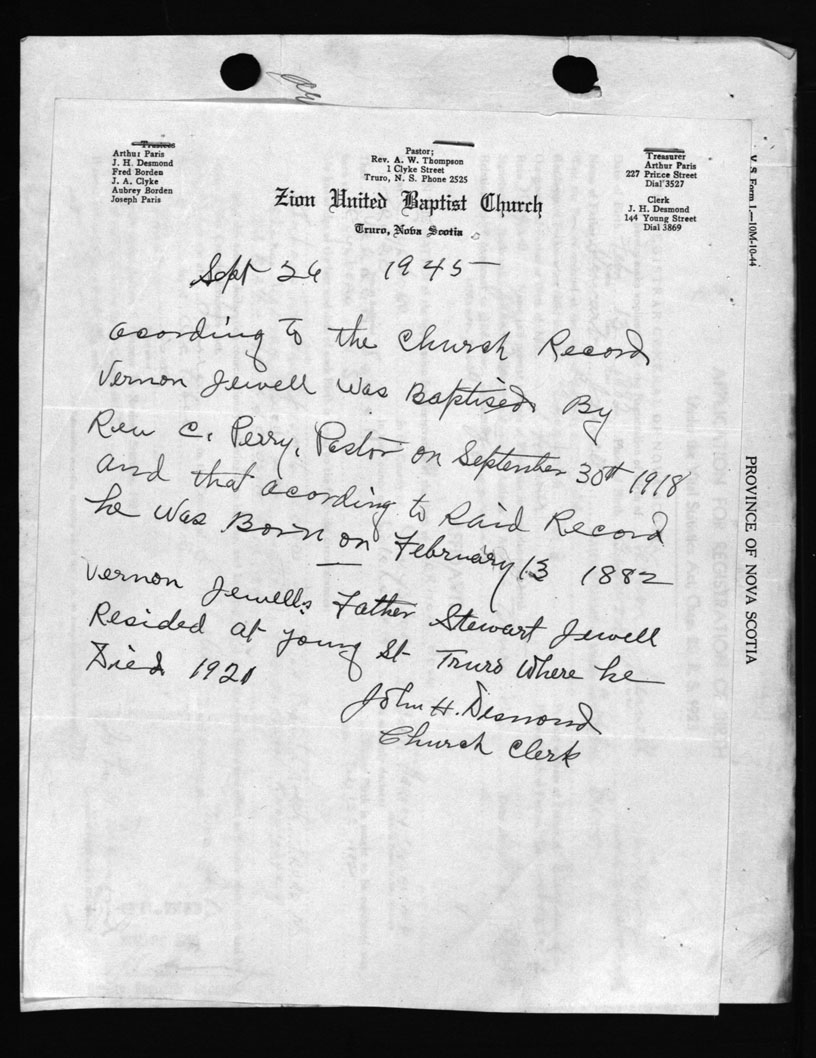 Trustees
Arthur Paris
J. H. Desmond
Fred Borden
J. A. Clyke
Aubrey Borden
Joseph Paris
Pastor;
Rev. A. W. Thompson
1 Clyke Street
Truro, N. S. Phone 2525
Treasurer
Arthur Paris
227 Prince Street
Dial 3527
Clerk
J. H. Desmond
144 Young Street
Dial 3869
Zion United Baptist Church
Truro, Nova Scotia
Sept 26 1945
acording to the Church Record
Vernon Jewell Was Baptised By
Rev C. Perry, Pastor on September 30th 1918
and that acording to Said Record
he Was Born on February 13 1882
Vernon Jewells Father Stewart Jewell
Resided at Young St Truro Where he
Died 1921
John H. Desmond
Church Clerk
V. S. Form 1.—10M-10-44
PROVINCE OF NOVA SCOTIA